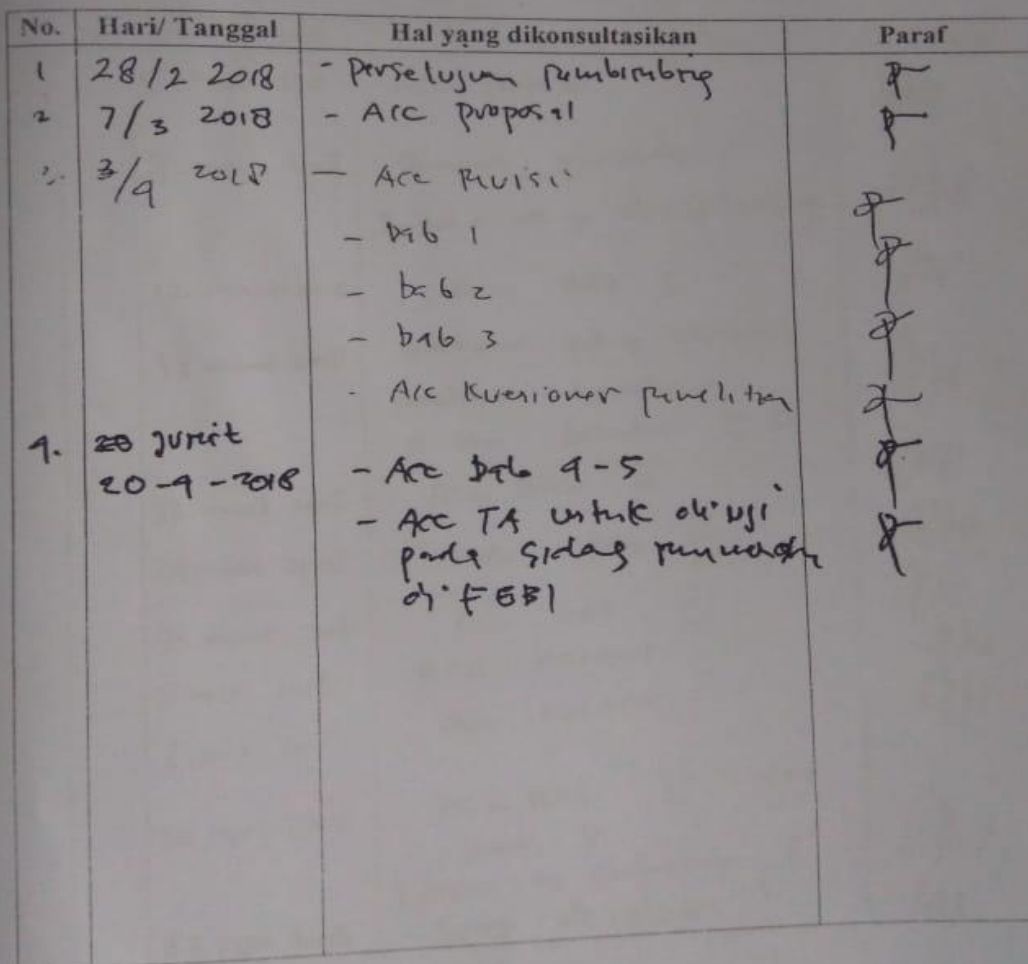 No. Hari/ Tanggal Hal yang dikonsultasikan Paraf
1 28/2 2018 - Persetujuan pembimbing
2 7/3 2018 - Acc proposal
3. 3/4 2018 - Acc Revisi
- bab 1
- bab 2
- bab 3
- Acc Kuesioner penelitian
4. Jum'at
20-4-2018 - Acc bab 4-5
- Acc TA untuk diuji
pada sidang
di FEBI